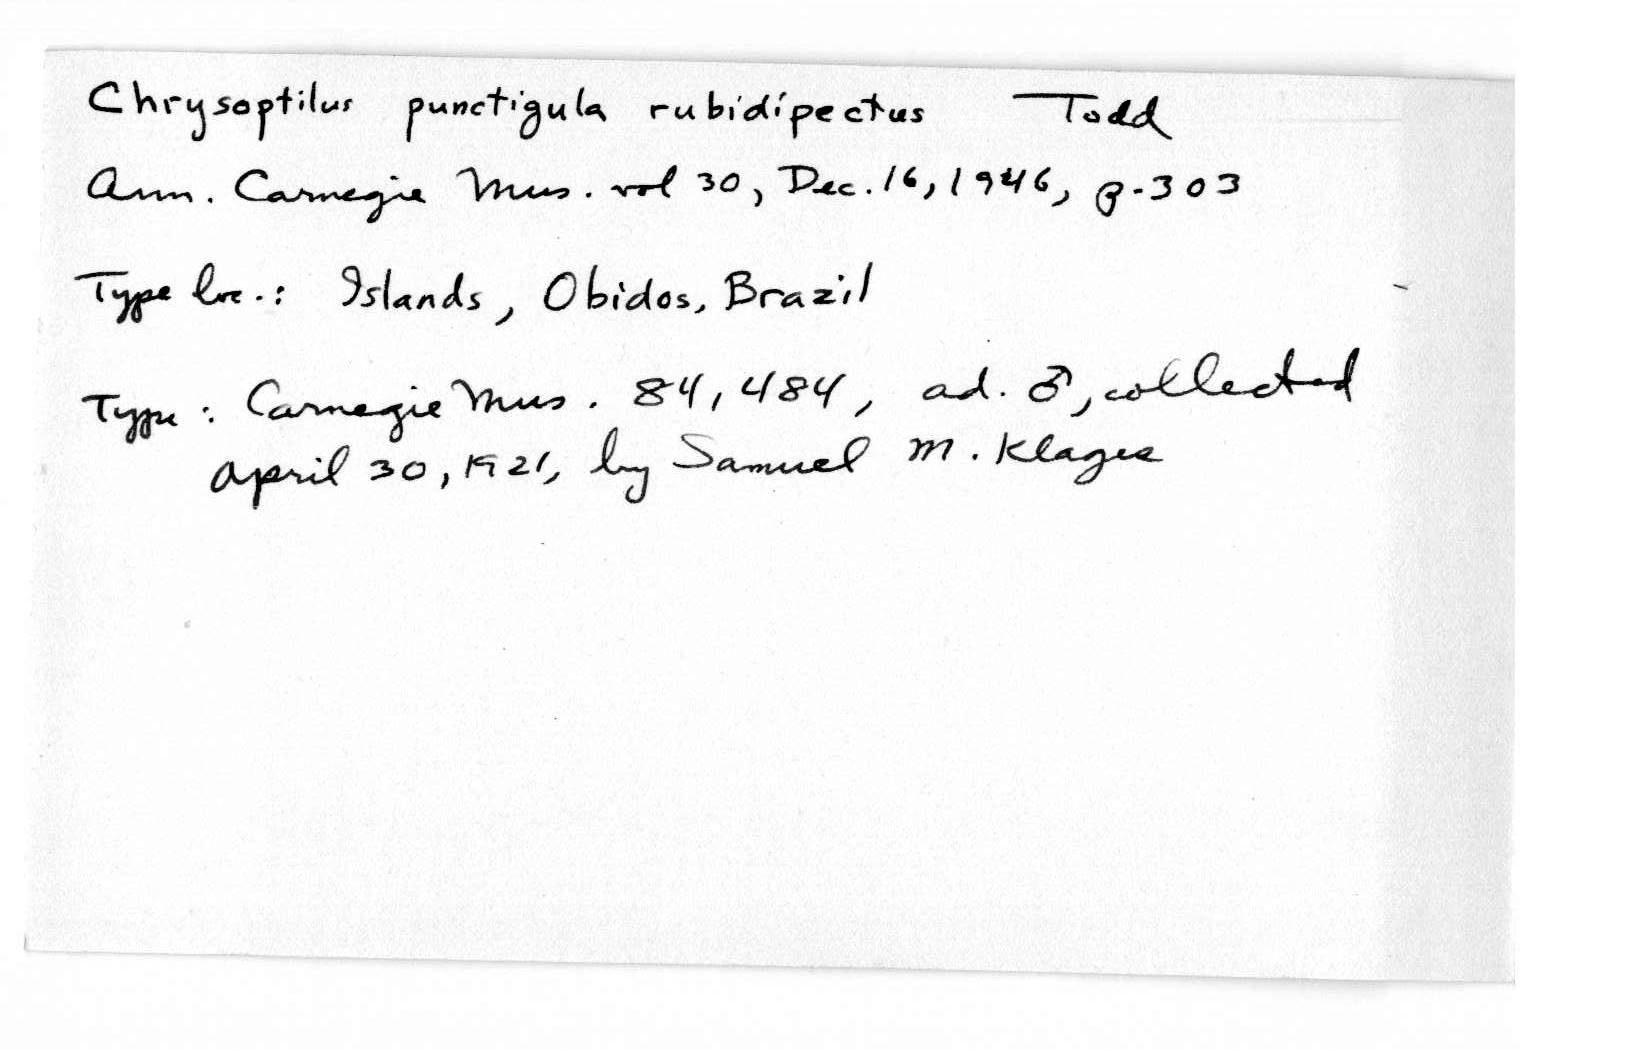 Chrysoptilus punctigula rubidipectus Todd
Ann. Carnegie Mus. vol 30, Dec. 16, 1946, p. 303
Type loc.: Islands, Obidos, Brazil
Type: Carnegie Mus. 84,484, ad. ♂, collected
April 30, 1921, by Samuel M. Klages